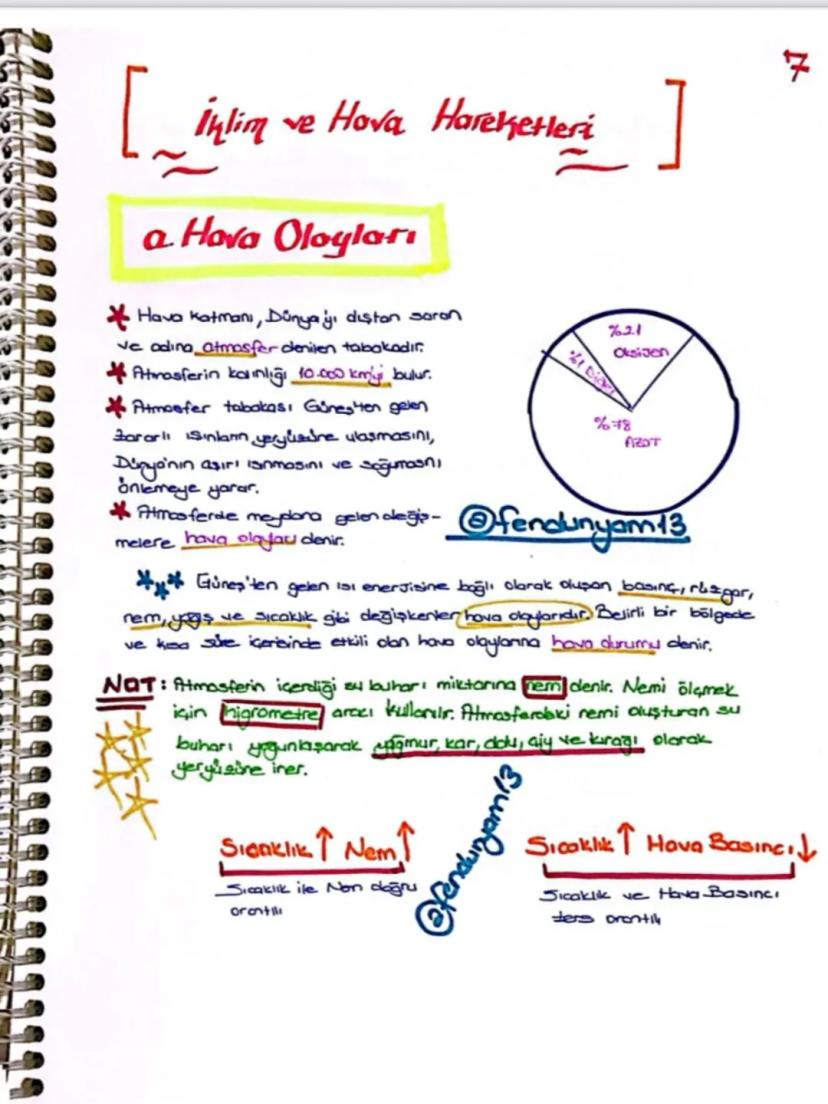 7
İklim ve Hava Hareketleri
a Hava Olayları
* Hava katmanı, Dünya'yı dıştan saran
ve adına atmosfer denilen tabakadır.
* Atmosferin kalınlığı 10.000 km'yi bulur.
* Atmosfer tabakası Güneş'ten gelen
zararlı ışınların yeryüzüne ulaşmasını,
Dünya'nın aşırı ısınmasını ve soğumasını
önlemeye yarar.
* Atmosferde meydana gelen değiş-
melere hava olayları denir.
%21
Oksijen
%1 Diğer
%78
AZOT
@fendunyam13
*** Güneş'ten gelen ısı enerjisine bağlı olarak oluşan basınç, rüzgar,
nem, yağış ve sıcaklık gibi değişkenler hava olaylarıdır. Belirli bir bölgede
ve kısa süre içerisinde etkili olan hava olaylarına hava durumu denir.
NOT: Atmosferin içerdiği su buharı miktarına nem denir. Nemi ölçmek
için higrometre aracı kullanılır. Atmosferdeki nemi oluşturan su
buharı yoğunlaşarak yağmur, kar, dolu, çiy ve kırağı olarak
yeryüzüne iner.
@fendunyam13
Sıcaklık ↑ Nem ↑
Sıcaklık ile Nem doğru
orantılı
Sıcaklık ↑ Hava Basıncı ↓
Sıcaklık ve Hava Basıncı
ters orantılı